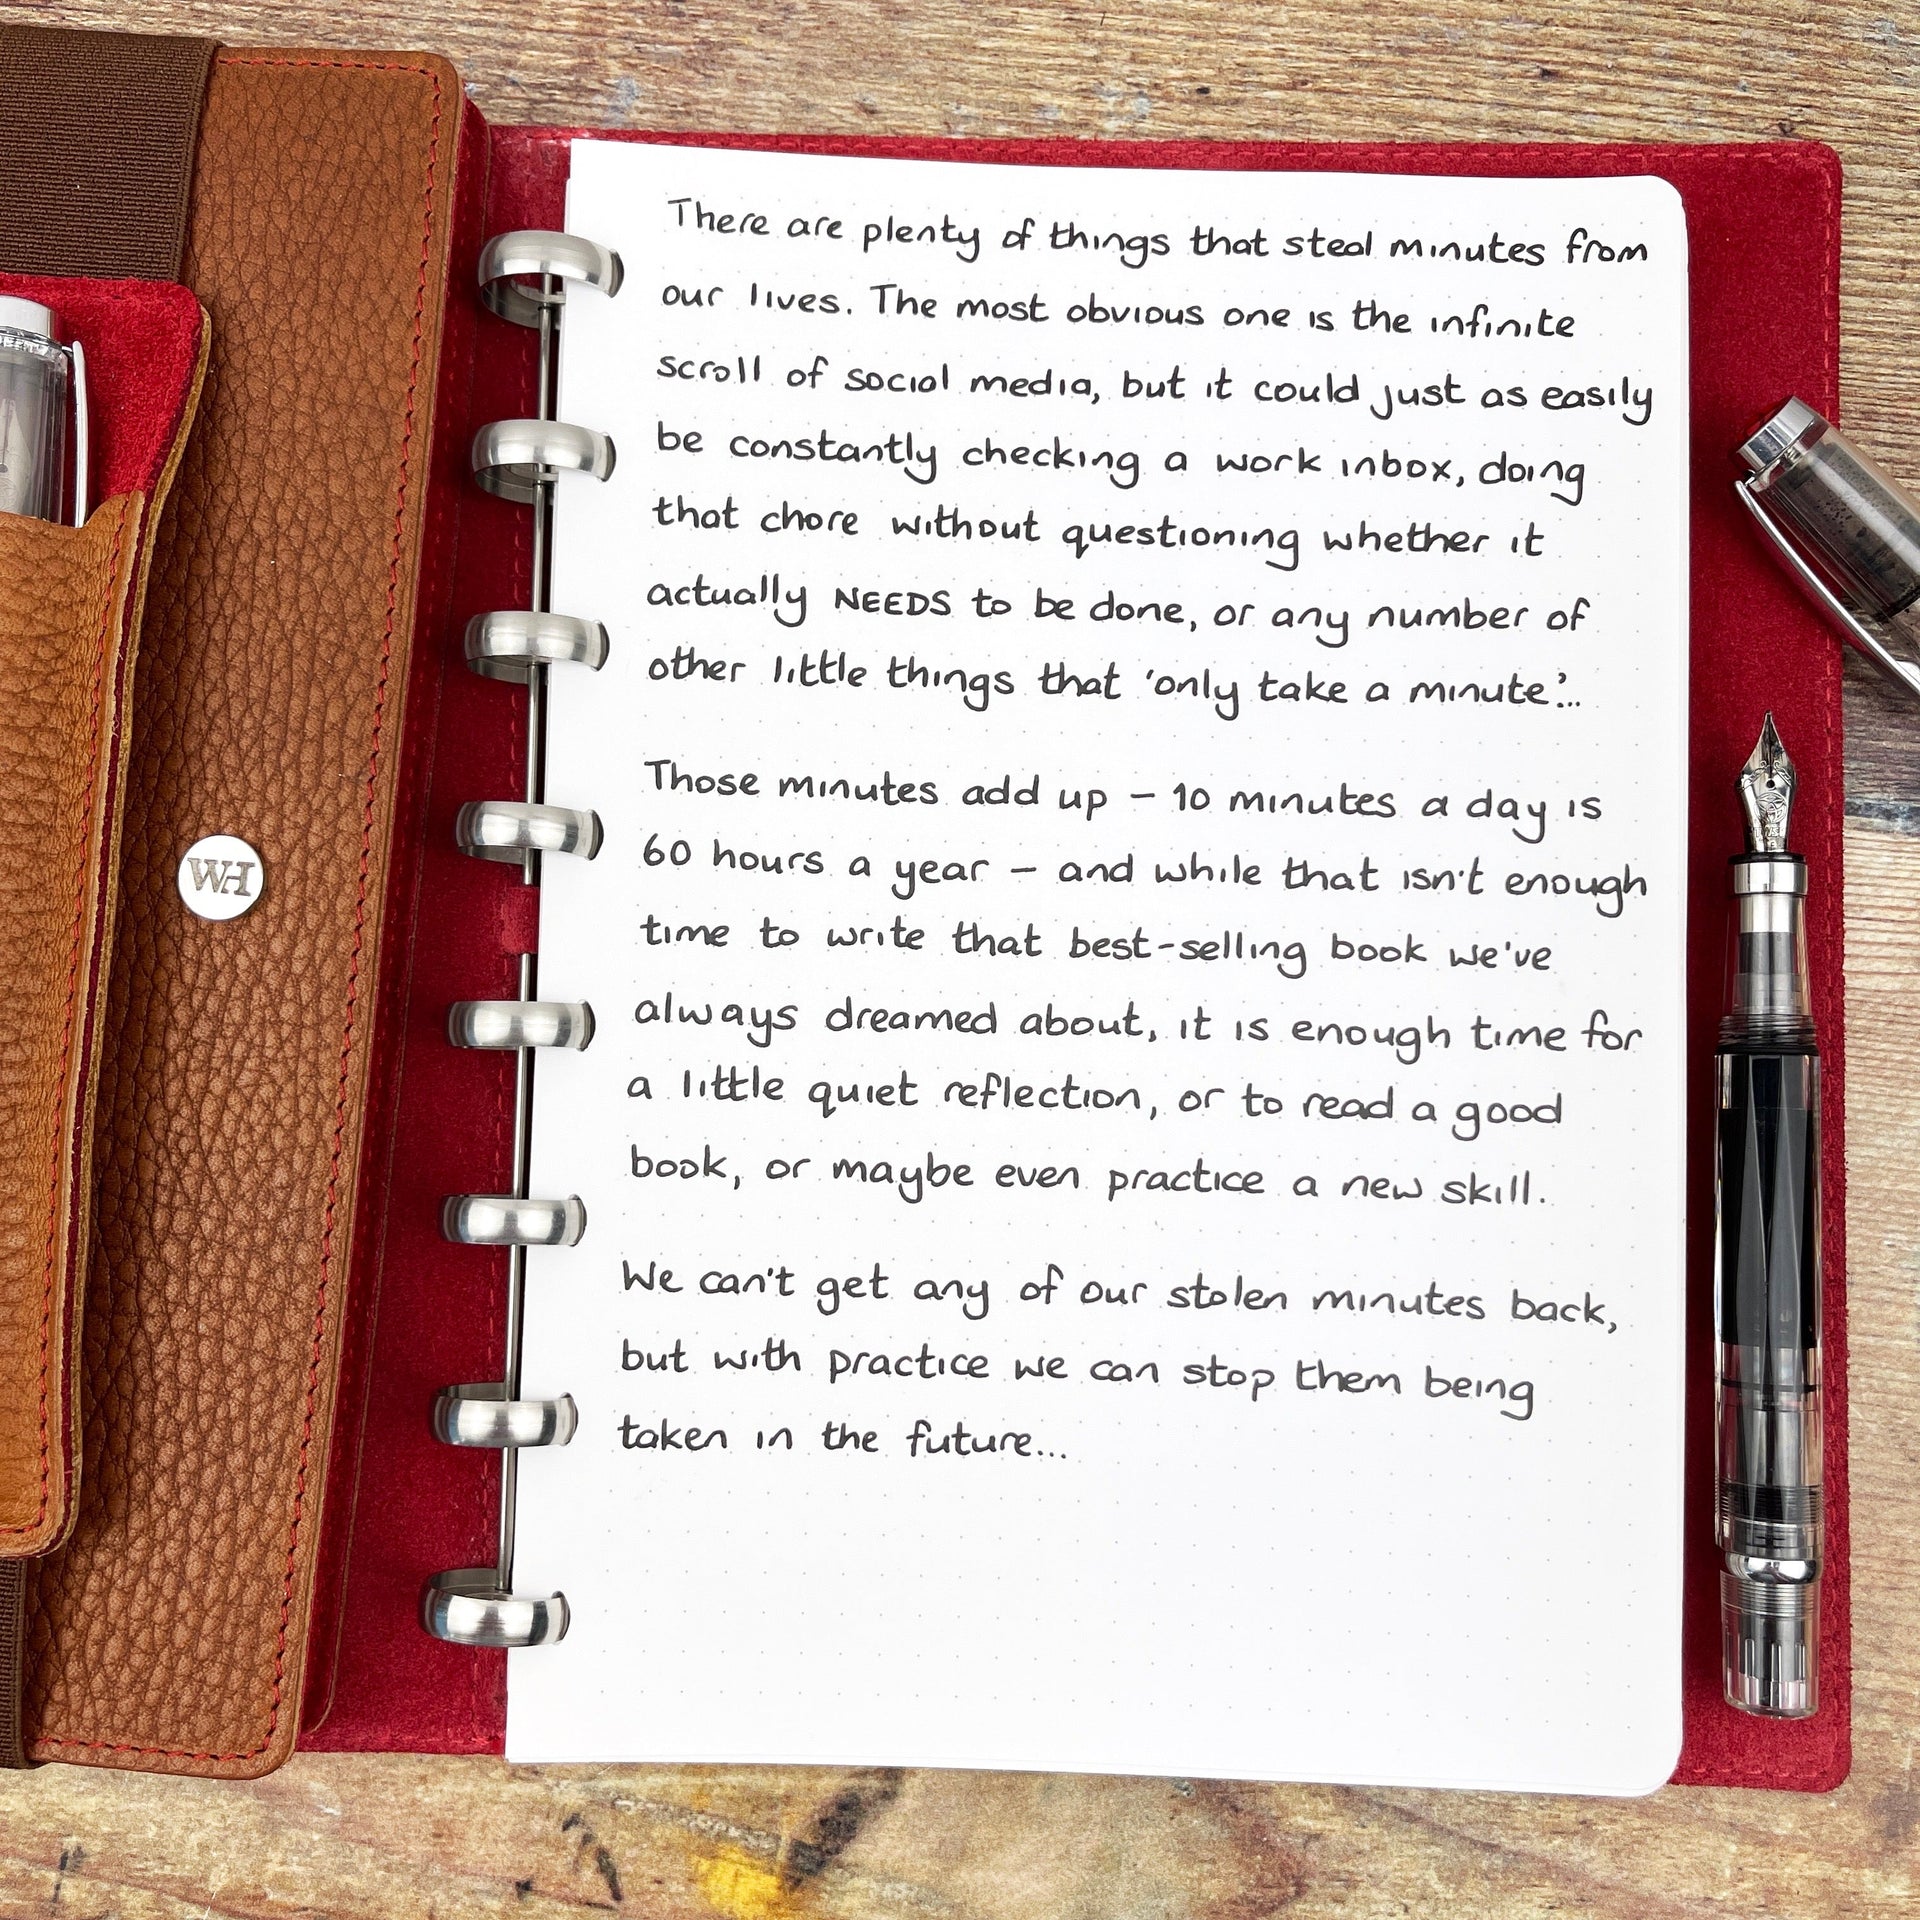 There are plenty of things that steal minutes from
our lives. The most obvious one is the infinite
scroll of social media, but it could just as easily
be constantly checking a work inbox, doing
that chore without questioning whether it
actually NEEDS to be done, or any number of
other little things that 'only take a minute'...
Those minutes add up – 10 minutes a day is
60 hours a year – and while that isn't enough
time to write that best-selling book we've
always dreamed about, it is enough time for
a little quiet reflection, or to read a good
book, or maybe even practice a new skill.
We can't get any of our stolen minutes back,
but with practice we can stop them being
taken in the future...
WH